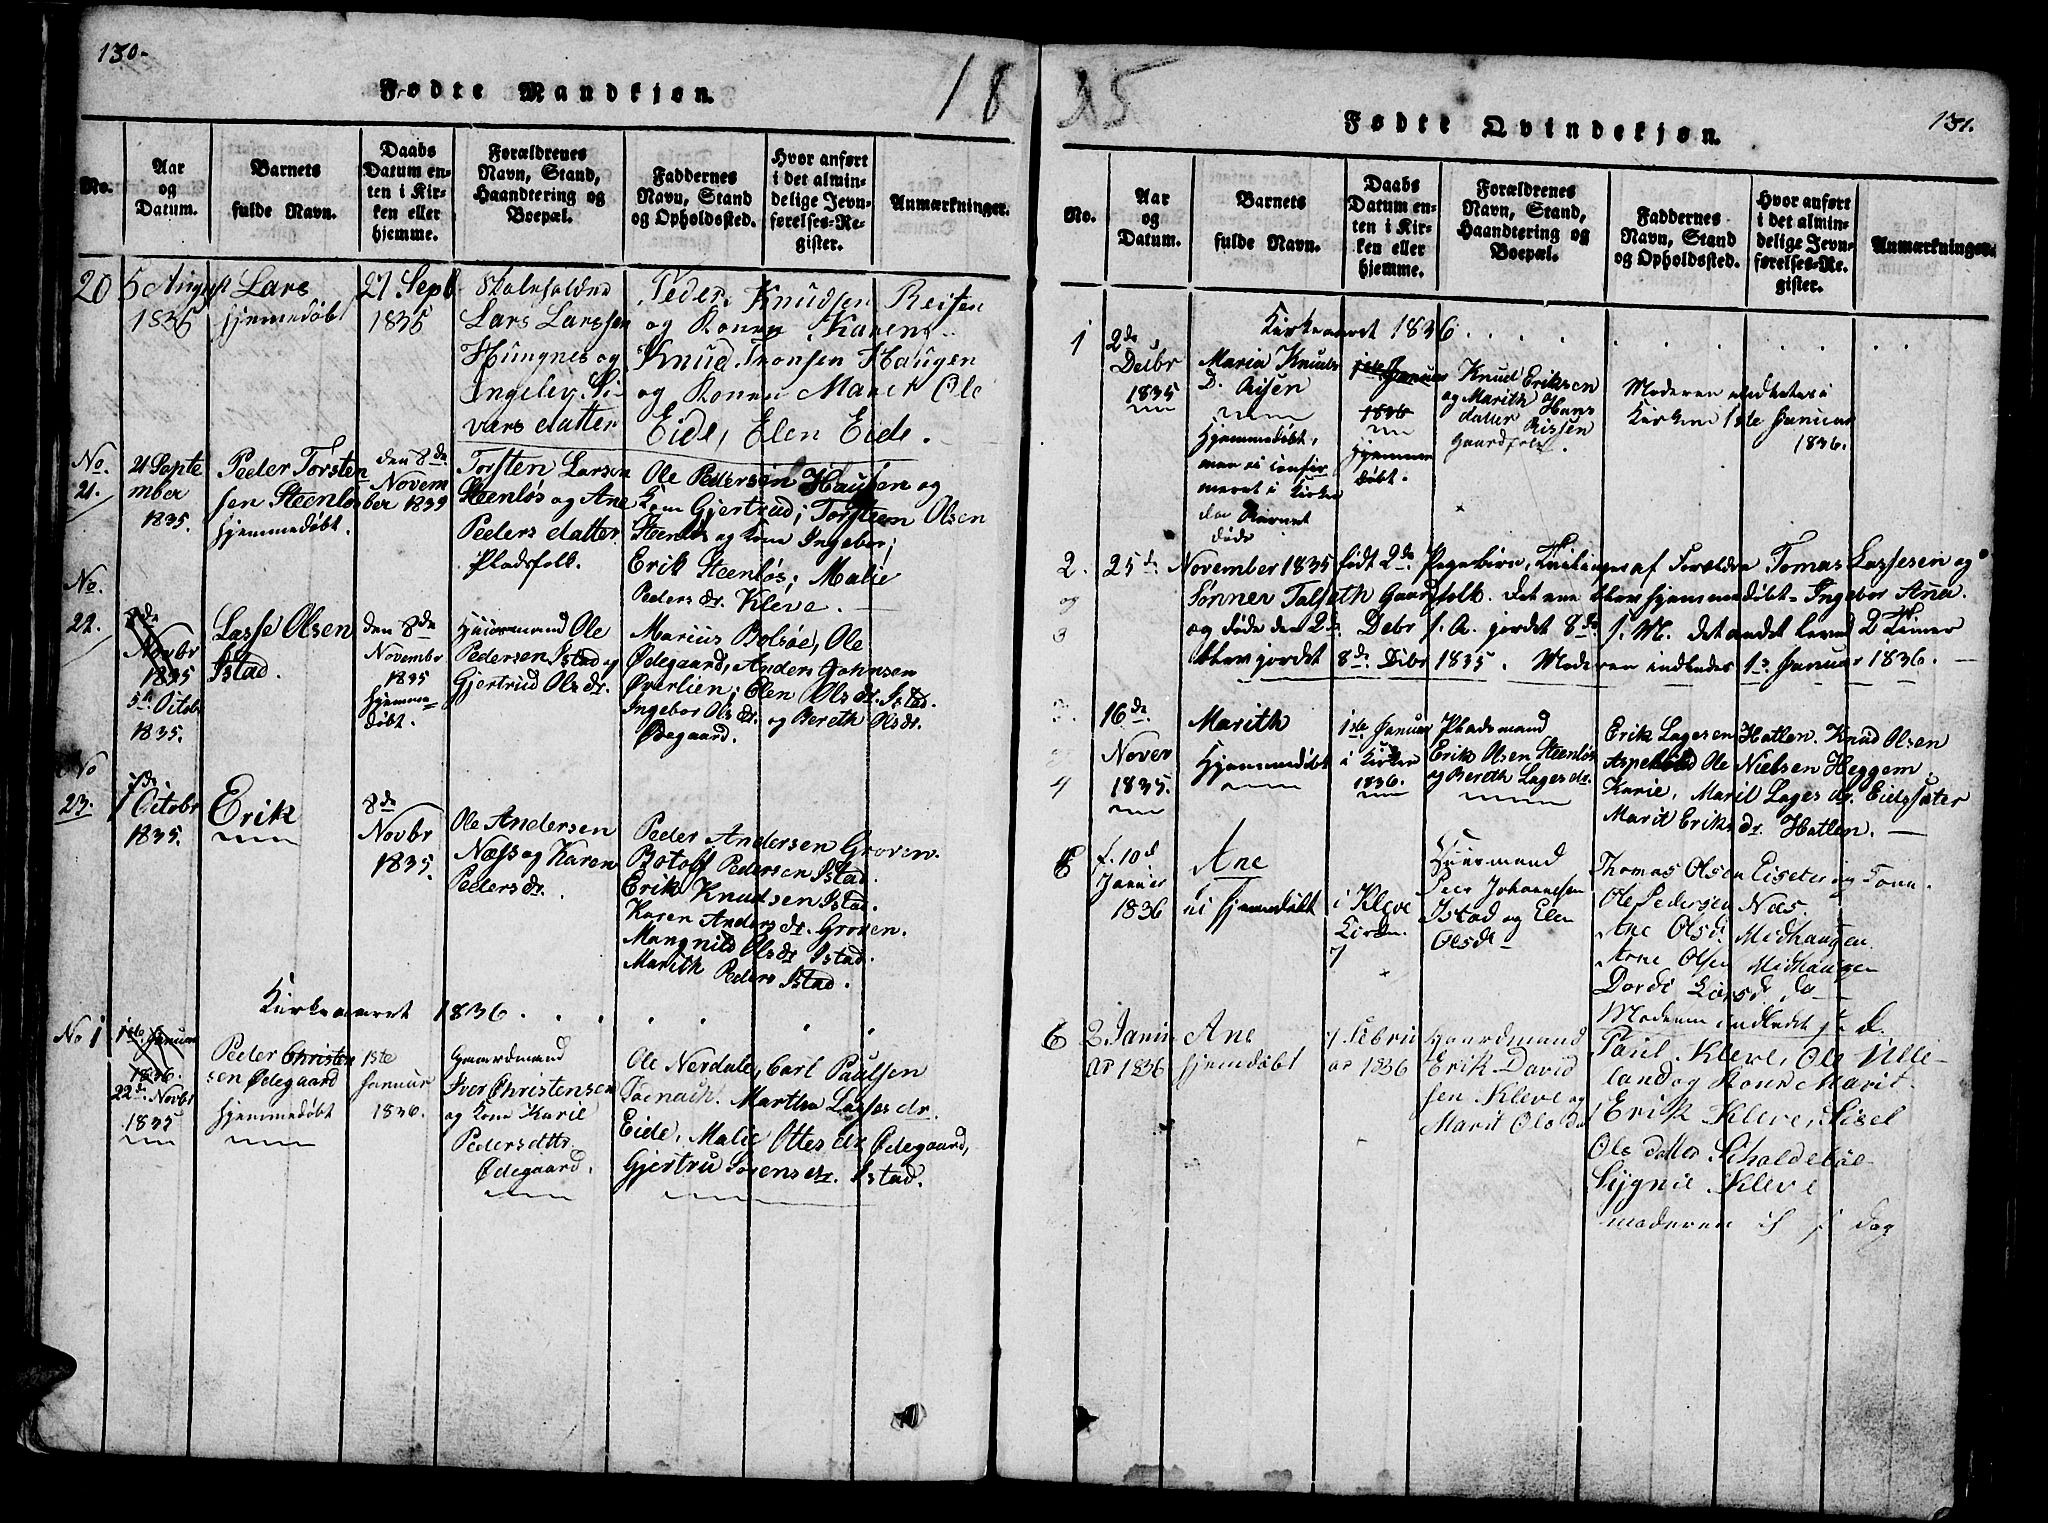 130.
Fødte Mandkjøn.
18
No.
Aar
og
Datum.
Barnets
fulde Navn.
Daabs
Datum en-
ten i Kir-
ken eller
hjemme.
Forældrenes
Navn, Stand,
Haandtering og
Boepæl.
Faddernes
Navn, Stand
og Opholdssted.
Hvor anført
i det almin-
delige Jevn-
førelses-Re-
gister.
Anmærkninger.
20
5 August
1835
Lars
hjemedøbt
27 Sept
1835
Lars Larssen
Hungnes og
Ingeley Si-
vars datter
Peder Knudsen Reiten
og Konen Karen
Knud Tronsen Haugen
og Konen Marit Ole
Eide, Elen Eide.
No.
21.
21 Septe
mber
1835.
Peder Torsten
sen Steenløs
hjemmedøbt.
den 8de
Novem
ber 1835
Torsten Larsen
Steenløs og Ane
Peders datter
Pladsfolk.
Ole Pedersen Hausen og
Kone Gjertrud; Torsteen Olsen
Steenløs og Kone Ingebor;
Erik Steenløs; Malie
Peders dr. Kleve.
No.
22.
8de
Novbr
1835
5te Octobr
1835.
Lasse Olsen
Istad.
den 8de
Novembr
1835
hjemme-
døbt.
Huusmand Ole
Pedersen Istad og
Gjertrud Ols dr.
Marius Bolsøe, Ole
Ødegaard, Anders Johnsen
Øverlien; Elen Ols dr. Istad.
Ingebor Ols dr. og Bereth Olsdr.
Ødegaard.
No
23.
7de
Octobr
1835.
Erik
8de
Novbr
1835.
Ole Andersen
Næss og Karen
Peders dr.
Peder Andersen Groven.
Botolf Pedersen Istad.
Erik Knudsen Istad.
Karen Anders dr. Groven.
Mangnild Olsdr Istad.
Marith Peders Istad.
Kirkeaaret 1836.
No 1
1ste Januar
1836.
22de Novbr
1835
Peder Christen
sen Ødegaard
hjemmedøbt
1ste
Januar
1836.
Gaardmand
Iver Christensen
og Kone Karie
Pedersdttr.
Ødegaard.
Ole Nerdale, Carl Paulsen
Martha Lasses dr.
Eide, Malie Ottes dr Ødegaard,
Gjertru Sørens dr. Istad.
15
Fødte Qvindekjøn.
131.
No.
Aar
og
Datum.
Barnets
fulde Navn.
Daabs
Datum en-
ten i Kir-
ken eller
hjemme.
Forældrenes
Navn, Stand,
Haandtering og
Boepæl.
Faddernes
Navn, Stand
og Opholdssted.
Hvor anført
i det almin-
delige Jevn-
førelses-Re-
gister.
Anmærkninger.
Kirkeaaret 1836
1
2de
Decbr
1835
Maria Knuds
D. Risen
Hjemmedøbt,
men ei confir
meret i Kirken
da Barnet
døde
1ste Januar
1836
hjemme
døbt.
Knud Eriksen
og Marith Hans
datter Rissen
Gaardfolk.
Moderen indledtes i
Kirken 1ste Januar
1836.
2.
og
3
25de November 1835 født 2de Pigebørn, Tvillinger af Forældre Tomas Lassesen og
Sønnev Talseth Gaardfolk. Det ene blev hjemmedøbt Ingebor Ana.
og døde den 2de Debr s. A. jordet 8de s. M. det andet levede 2 Timer
blev jordet 8de Dibr 1835. Moderen indledes 1s Januar 1836.
4
16de
Nover
1835.
Marith
Hjemmedøbt
1ste Januar
i Kirken
1836.
Pladsmand
Erik Olsen Steenløs
og Bereth Lages dr.
Erik Lagesen Hatlen. Knud Olsen
Ole Nielsen Heggem
Karie, Marit Lages dr. Eidssæter
Marit Eriks dr. Hatlen.
5
f. 10d
Januar
1836
Ane
ei hjemedøbt
i Kleve
Kirken
7
Huusmand
Peer Johannesen
Istad og Elen
Olsdr
Thomas Olsen Eiseter og Kone.
Ole Pedersen Næs.
Ane Olsd. Midhaugen.
Arne Olsen Midhaugen
Dordi Larsdr do
Moderen indledt s. d.
6
2 Janu
ar 1836
Ane
hjemdøbt
7 Febru
ar 1836
Gaardmand
Erik David
sen Kleve og
Marit Olsd
Paul Kleve, Ole Lille-
land og Kone Marit
Erik Kleve, Sisel
Ols datter Schaldebøe
Sygnie Kleve
moderen if s dag